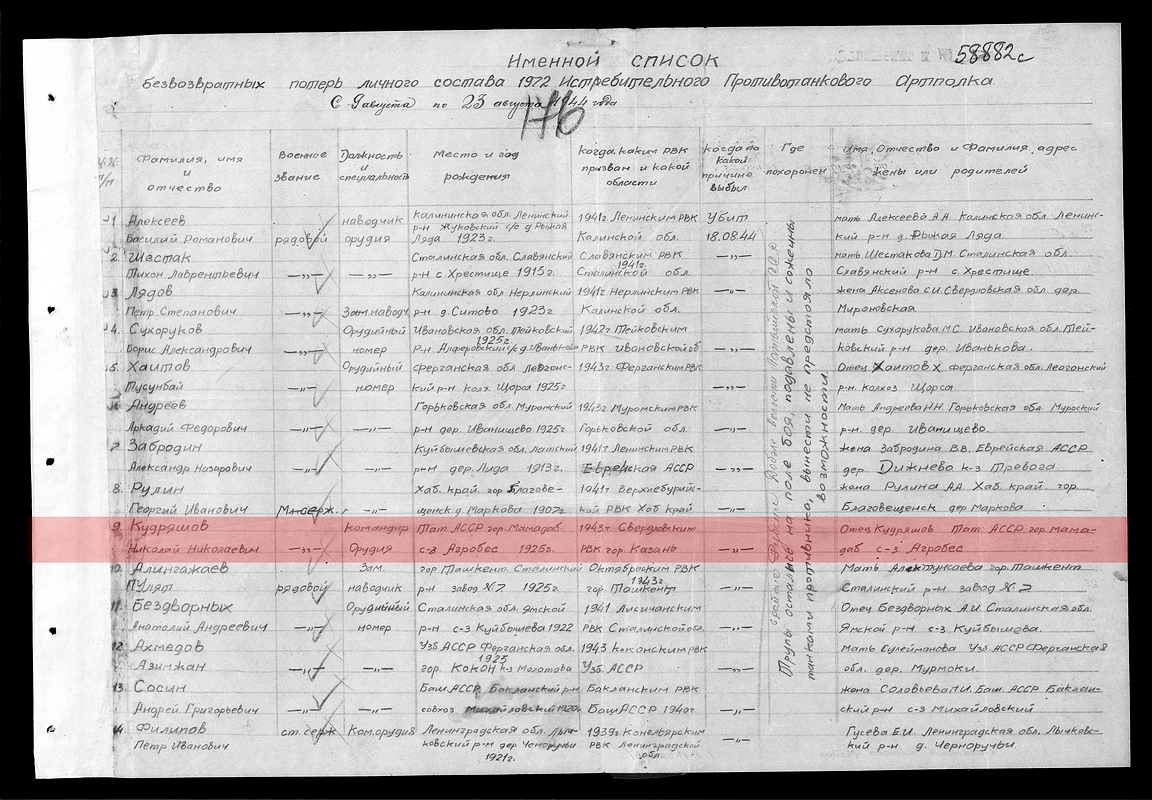 58882с
Именной список
безвозвратных потерь личного состава 1972 Истребительного Противотанкового Артполка
С 9 августа по 23 августа 1944 года
176
№№ п/п
Фамилия, имя и отчество
Военное звание
Должность и специальность
Место и год рождения
Когда, каким РВК призван и какой области
Когда по какой причине выбыл
Где похоронен
Имя, Отчество и Фамилия, адрес жены или родителей
1 Алексеев наводчик Калининская обл. Ленинский 1941г. Ленинским РВК Убит мать Алексеева А.А. Калинская обл Ленинс-
Василий Романович рядовой орудия р-н Жуковский с/с д Рыжая Ляда 1923г. Калинской обл. 18.08.44 кий р-н д. Рыжая Ляда
2. Шестак Сталинская обл. Славянский Славянским РВК мать Шестакова Д.М. Сталинская обл.
Тихон Лаврентьевич —„— —„— р-н с. Хрестище 1915г. 1941г. Сталинской обл. Славянский р-н с. Хрестище
3 Лядов Калининская обл Нерлинский 1941г Нерлинским РВК —„— жена Аксенова С.И. Свердловская обл. дер.
Петр Степанович —„— Зам.наводч р-н д. Ситово 1923г Калинской обл. Мироновская
4. Сухоруков Орудийный Ивановская обл. Тейковский 1942г. Тейковским мать Сухорукова М.С. Ивановская обл. Тей-
Борис Александрович —„— номер 1925г. р-н Алферовский с/с д. Иванькова РВК Ивановской об —„— ковский р-н дер. Иванькова.
5. Хаитов Орудийный Ферганская обл Леогонс- 1943г Ферганским РВК Отец Хаитов Х Ферганская обл. Леоганский
Тусунбай —„— номер кий р-н колх Щорса 1925г. —„— р-н. колхоз Щорса
6 Андреев Горьковская обл. Муромский 1943г. Муромским РВК Мать Андреева Н.Н. Горьковская обл. Муроский
Аркадий Федорович —„— —„— р-н дер. Иванищево 1925г. Горьковской обл. —„— р-н. дер. Иванищево.
7 Забродин Куйбышевская обл. Латский 1941г Ленинским РВК жена Забродина В.В. Еврейская АССР
Александр Назарович —„— —„— р-н дер. Лида 1913г. Еврейская АССР —„— дер. Дижнево к-з Тревога.
8. Рулин Хаб. край. гор Благове- 1941г Верхнебурий- жена Рулина А.А. Хаб. край. гор.
Георгий Иванович Мл.серж. —„— щенск д. Маркова 1907г. кий РВК Хаб край —„— Благовещенск дер Маркова
9. Кудряшов командир Тат. АССР гор. Мамадаб 1943г Свердловским Отец Кудряшов Тат. АССР гор. Мама-
Николай Николаевич —„— Орудия с-з Агробес 1925г. РВК гор. Казань —„— даб с-з Агробес
10. Алингажаев Зам. гор Ташкент. Сталинский Октябрьским РВК Мать гор Ташкент
Пулят рядовой наводчик р-н завод №7 1925г. 1943г. гор Ташкент —„— Сталинский р-н завод №7
11. Бездворных Орудийный Сталинская обл. Ямской 1941 Лисичанским Отец Бездворнах А.И Сталинская обл.
Анатолий Андреевич —„— номер р-н с-з Куйбышева 1922 РВК Сталинской обл. —„— Ямской р-н с-з Куйбышева.
12. Ахмедов Узб АССР Ферганская обл. 1943 Коконским РВК мать Сулейманова Узб АССР Ферганская
Азимжан —„— —„— 1925 гор. Кокон к-з Молотова Узб АССР —„— обл. дер. Мурмоки.
13. Сосин Баш АССР Бакланский р-н Бакланским РВК жена Соловьева М.И. Баш. АССР Баклан-
Андрей Григорьевич —„— —„— совхоз Михайловский 1920г. Баш АССР 1940г —„— ский р-н с-з Михайловский
14 Филипов ст. серж Ком.орудия Ленинградская обл. Лыч- 1939г. Конельярским Гусева Е.И. Ленинградская обл. Лычковс-
Петр Иванович ковский р-н дер Ченоручьи 1921г. РВК Ленинградской обл. —„— кий р-н д. Черноручьи.
Трупы остались на поле боя, подавлены и сожжены
танками противника, вынести не предстояло
возможности.